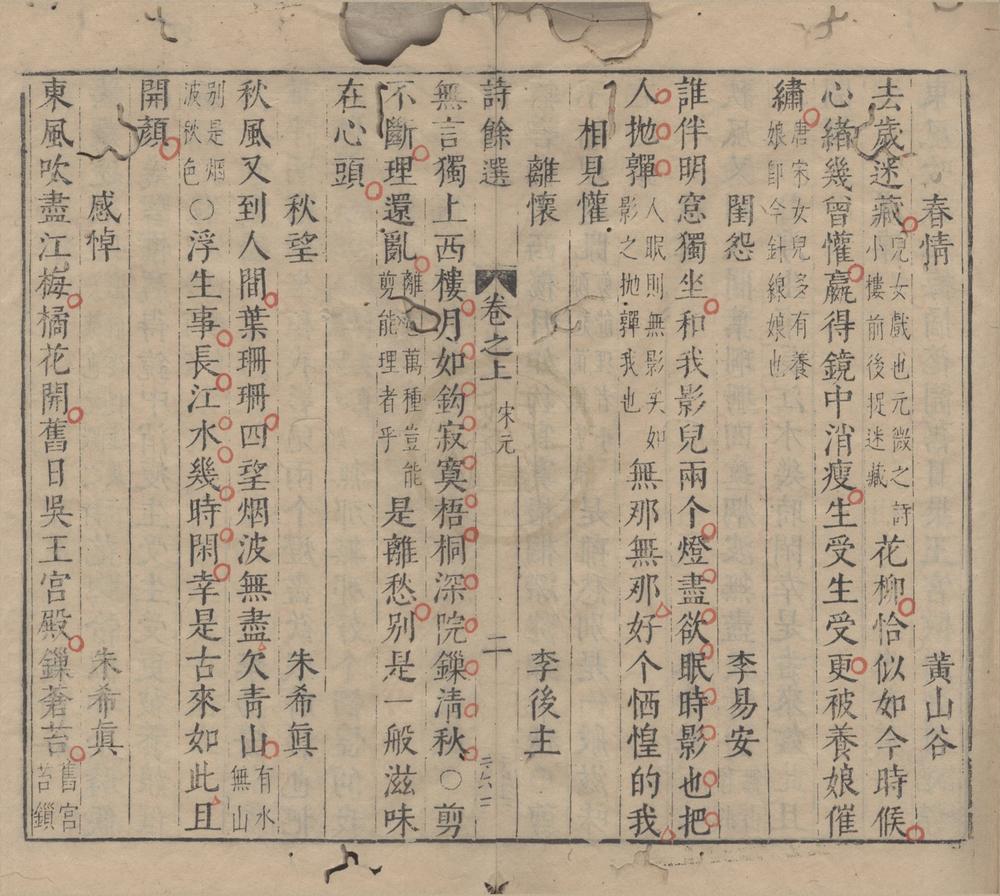 春情　黃山谷
去歲迷藏兒女戲也元微之詩小樓前後捉迷藏花柳恰似如今時候
心緒幾曾懽贏得鏡中消瘦生受生受更被養娘催
繡唐宋女兒多有養娘卽今針線娘也
閨怨　李易安
誰伴明窓獨坐和我影兒兩个燈盡欲眠時影也把
人抛躲人眠則無影矣如影之抛躲我也無那無那好个恓惶的我
相見懽
離懷　李後主
詩餘選　卷之上　宋元　二
無言獨上西樓月如鈎寂寞梧桐深院鏁清秋○剪
不斷理還亂離愁萬種豈能剪能理者乎是離愁别是一般滋味
在心頭
秋望　朱希眞
秋風又到人間葉珊珊四望烟波無盡欠青山有水無山
别是烟波秋色○浮生事長江水幾時閑幸是古來如此且
開顏
感悼　朱希眞
東風吹盡江梅橘花開舊日吳王宫殿鏁蒼苔舊宫苔鎖